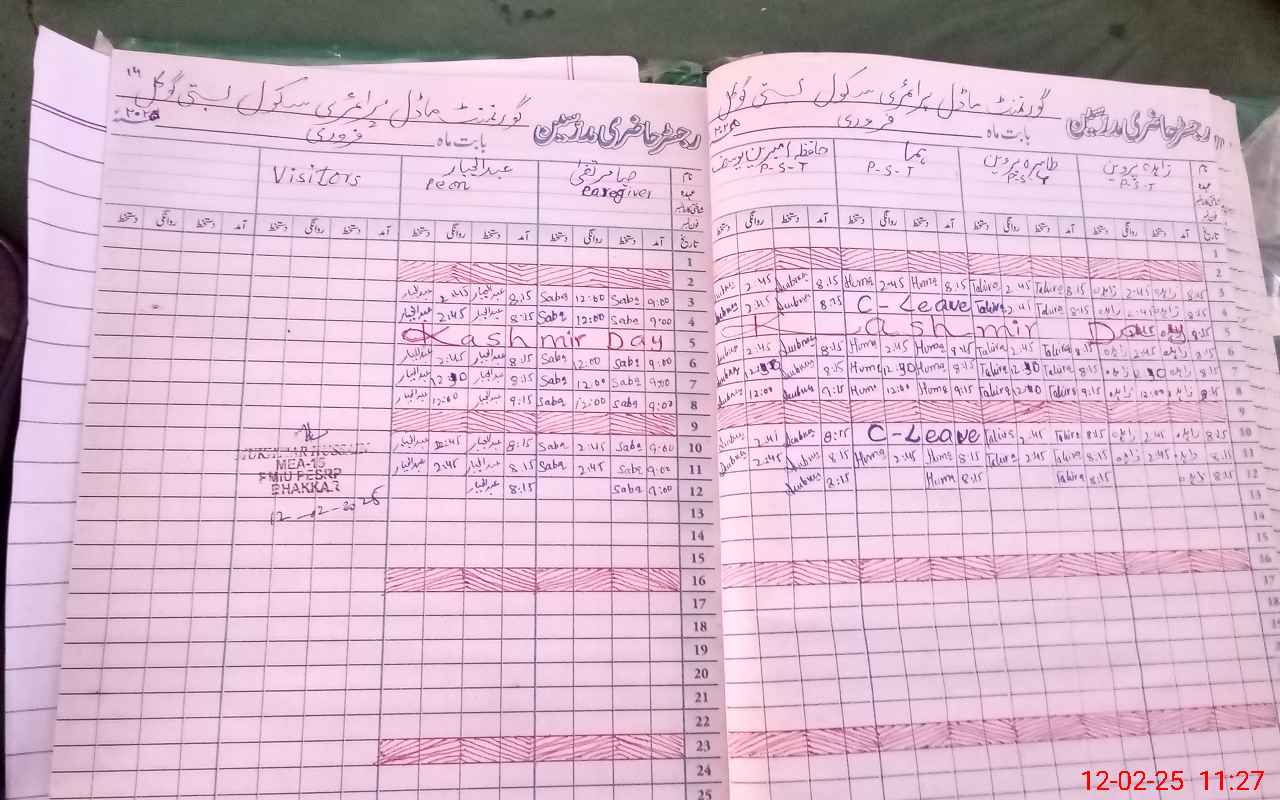 ۱۴
گورنمنٹ ماڈل پرائمری سکول بستی گوگل
رجسٹر حاضری مدرسین بابت ماہ فروری ۲۰۲۵
Visitors عبدالجبار صبا مرتضیٰ نام
Peon Caregiver عہدہ
دستخط روانگی دستخط آمد دستخط روانگی دستخط آمد دستخط روانگی دستخط آمد دستخط روانگی دستخط آمد تاریخ
1
2
عبدالجبار 2:45 عبدالجبار 8:15 Saba 12:00 Saba 9:00 3
عبدالجبار 2:45 عبدالجبار 8:15 Saba 12:00 Saba 9:00 4
Kashmir Day 5
عبدالجبار 2:45 عبدالجبار 8:15 Saba 12:00 Saba 9:00 6
عبدالجبار 12:30 عبدالجبار 8:15 Saba 12:00 Saba 9:00 7
عبدالجبار 12:00 عبدالجبار 9:15 Saba 12:00 Saba 9:00 8
9
عبدالجبار 2:45 عبدالجبار 8:15 Saba 2:45 Saba 9:00 10
عبدالجبار 2:45 عبدالجبار 8:15 Saba 2:45 Saba 9:00 11
عبدالجبار 8:15 Saba 9:00 12
MEA-15
PMIU PESRP
BHAKKAR
12-02-2025
13
14
15
16
17
18
19
20
21
22
23
24
25
گورنمنٹ ماڈل پرائمری سکول بستی گوگل
رجسٹر حاضری مدرسین بابت ماہ فروری ۲۰۲۵
حافظہ امبرین یوسف ہما طاہرہ پروین زاہدہ پروین نام
P-S-T P-S-T P-S-T P-S-T عہدہ
دستخط روانگی دستخط آمد دستخط روانگی دستخط آمد دستخط روانگی دستخط آمد دستخط روانگی دستخط آمد تاریخ
1
2
2:45 8:15 Huma 2:45 Huma 8:15 Tahira 2:45 Tahira 8:15 زاہدہ 2:45 زاہدہ 8:15 3
2:45 8:15 C-Leave Tahira 2:45 Tahira 8:15 زاہدہ 2:45 زاہدہ 8:15 4
Kashmir Day 8:15 5
2:45 8:15 Huma 2:45 Huma 8:15 Tahira 2:45 Tahira 8:15 زاہدہ 2:45 زاہدہ 8:15 6
12:30 8:15 Huma 12:30 Huma 8:15 Tahira 12:30 Tahira 8:15 زاہدہ زاہدہ 8:15 7
12:00 9:15 Huma 12:00 Huma 9:15 Tahira Tahira 8:15 زاہدہ 12:00 زاہدہ 8:15 8
9
2:45 8:15 C-Leave Tahira 2:45 Tahira 8:15 زاہدہ 2:45 زاہدہ 8:15 10
2:45 8:15 Huma 2:45 Huma 8:15 Tahira 2:45 Tahira 8:15 زاہدہ 2:45 زاہدہ 8:15 11
8:15 Huma 8:15 Tahira 8:15 زاہدہ 8:15 12
13
14
15
16
17
18
12-02-25 11:27